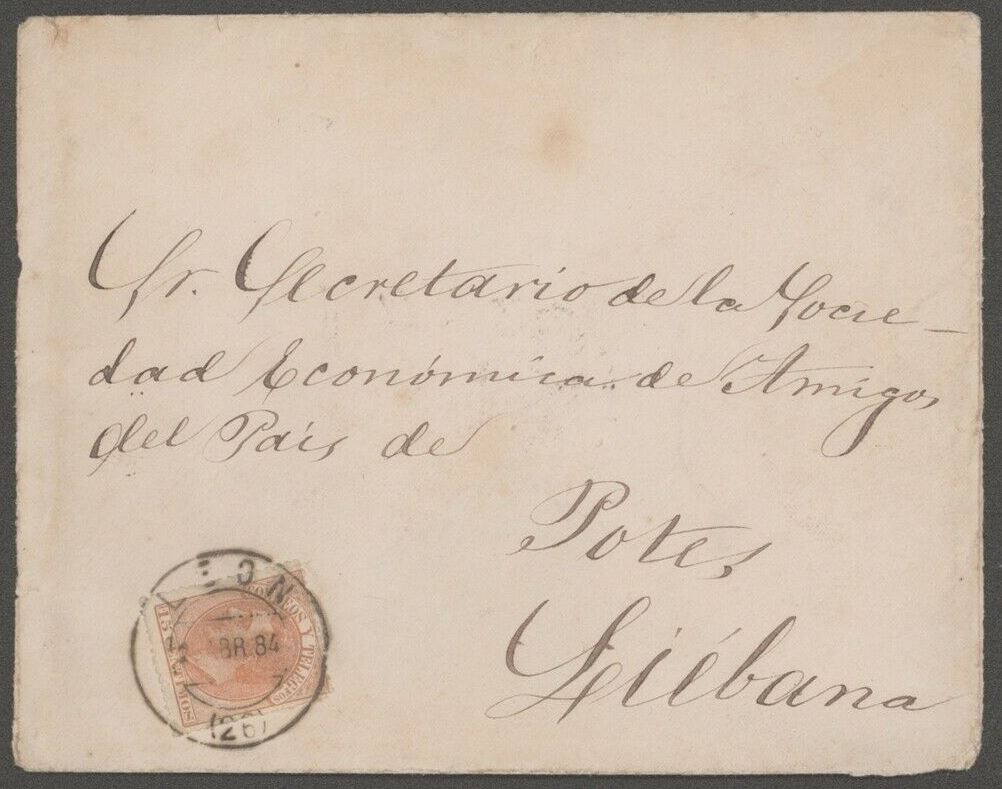 Sr. Secretario de la Socie-
dad Económica de Amigos
del País de
Potes
Liébana
LEON
BR. 84
(26)
CORREOS Y TELEGFOS
15 CENTIMOS